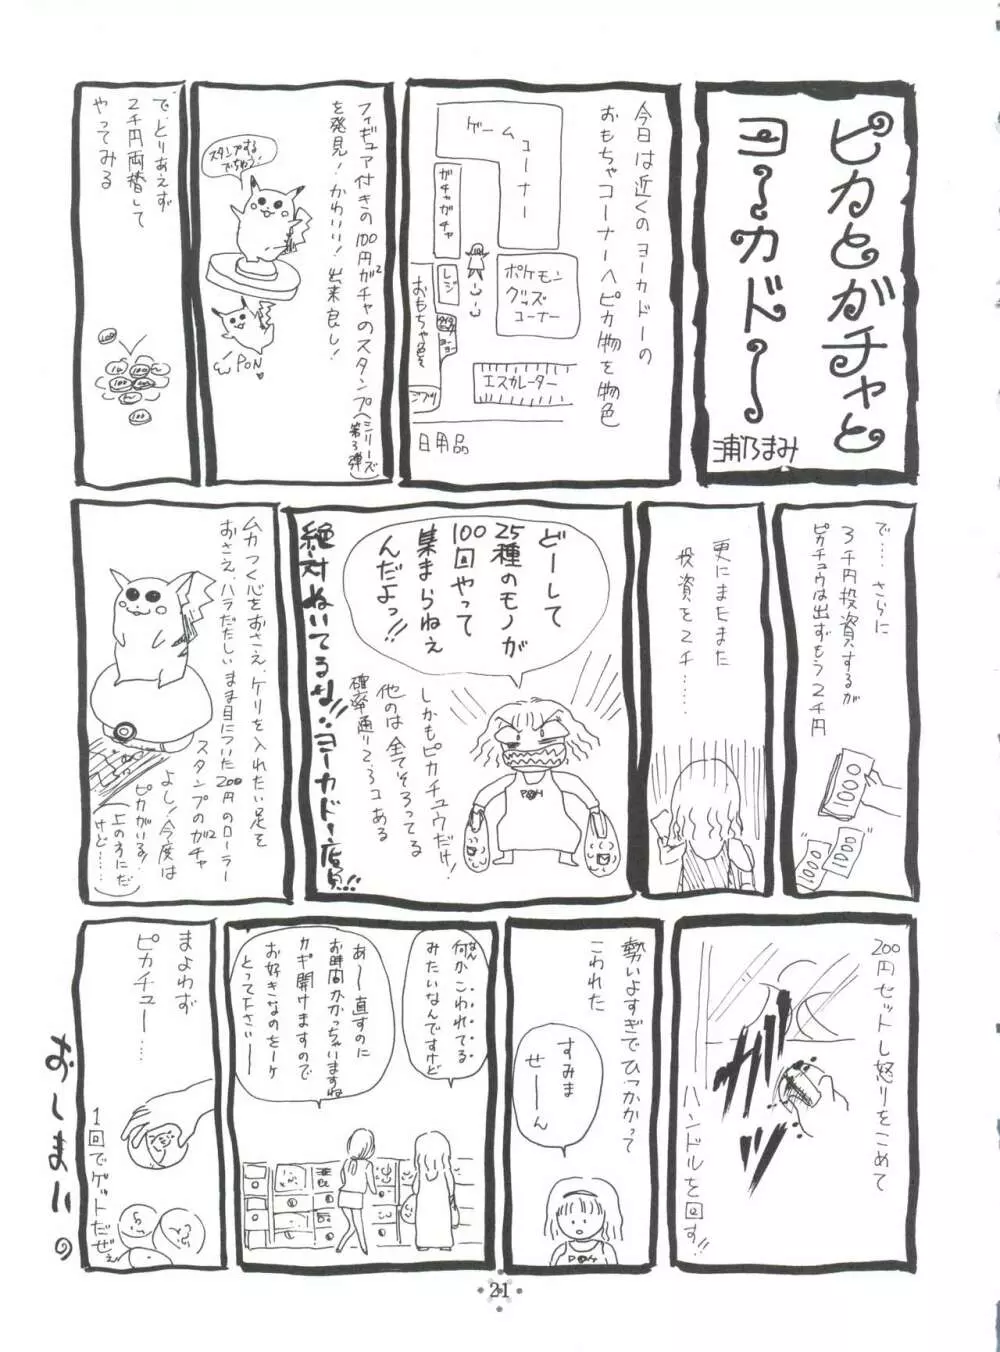 ピカとガチャと
ヨーカドー
浦乃まみ
今日は近くのヨーカドーの
おもちゃコーナーへピカ物を物色
ゲームコーナー
ガチャガチャ
レジ
ポケモン
グッズ
コーナー
おもちゃ色々
エスカレーター
日用品
フィギュア付きの100円ガチャのスタンプ(シリーズ
第3弾)
を発見!かわいい!出来良し!
スタンプする
でちゅう!
PON
で、とりあえず
2千円両替して
やってみる
100
100
100
で‥‥さらに
3千円投資するが
ピカチュウは出ずもう2千円
1000
1000
1000
更にまたまた
投資を2千‥‥‥
どーして
25種のモノが
100回やって
集まらねえ
んだよっ!!
しかもピカチュウだけ!
他のは全てそろってる
確率通り2、3コある
絶対ねいてるな!!ヨーカドー店員!!
POH
ムカつく心をおさえ、ケリを入れたい足を
おさえ、ハラだたしいまま目についた200円のローラー
スタンプのガチャ
よし!今度は
ピカがいる!
(上の方にだ
けど‥‥‥)
200円セットし怒りをこめて
ハンドルを回す!!
ガッ
勢いよすぎでひっかかって
こわれた
すみま
せーん
POH
何かこわれてる
なん
みたいなんですけど
あー直すのに
お時間かかっちゃいますね
カギ開けますので
お好きなのをーケ
とって下さいー
まよわず
ピカチュー‥‥
1回でゲットだぜぇ
おしまい。
21